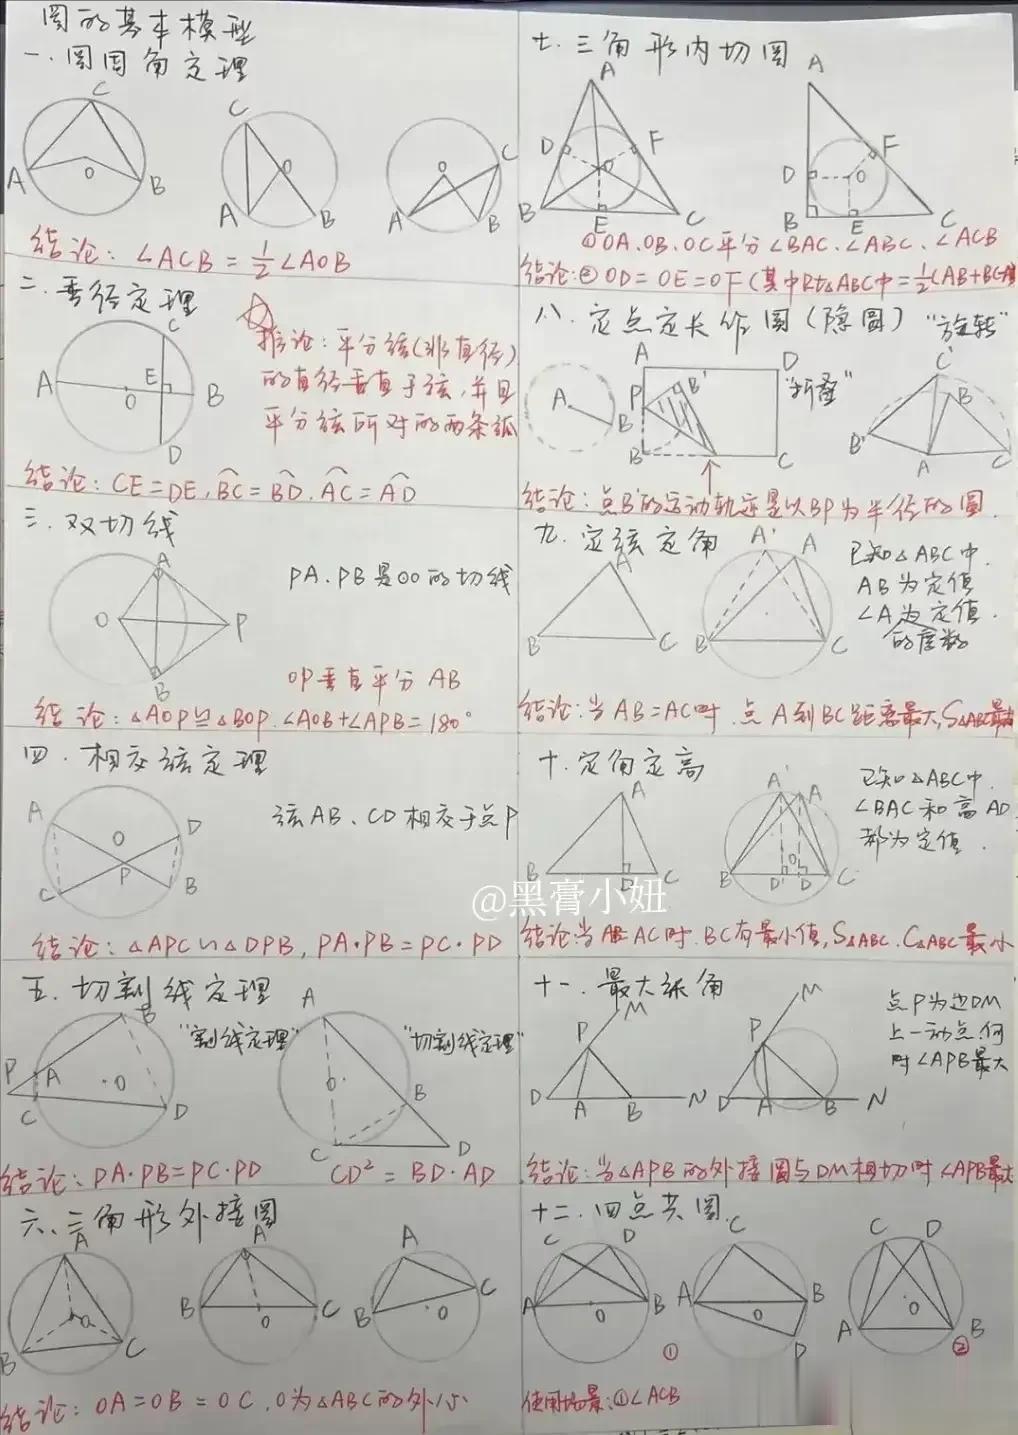 圆的基本模型
一.圆周角定理
C
A
O
B
C
O
A
B
O
C
A
B
结论：∠ACB=½∠AOB
二.垂径定理
C
A
E
O
B
D
推论：平分弦(非直径)
的直径垂直于弦,并且
平分弦所对的两条弧
结论：CE=DE,BC=BD,AC=AD
三.双切线
A
O
P
B
PA.PB是⊙O的切线
OP垂直平分AB
结论：△AOP≌△BOP.∠AOB+∠APB=180°
四.相交弦定理
A
O
D
P
C
B
弦AB、CD相交于点P
结论：△APC∽△DPB,PA·PB=PC·PD
五.切割线定理
B
"割线定理"
P
A
O
C
D
A
"切割线定理"
O
B
C
D
结论：PA·PB=PC·PD
CD²=BD·AD
六、三角形外接圆
A
O
B
C
A
B
O
C
A
C
B
O
结论：OA=OB=OC,O为△ABC的外心
七.三角形内切圆
A
D
F
O
B
E
C
A
F
D
O
B
E
C
①OA.OB.OC平分∠BAC.∠ABC、∠ACB
结论:②OD=OE=OF(其中Rt△ABC中=½(AB+BC-A
八.定点定长作圆(隐圆)
"旋转"
A
B
A
D
P
B'
"折叠"
B
C
C'
B
B'
A
C
结论：点B'的运动轨迹是以BP为半径的圆.
九.定弦定角
A
B
C
A'
A
B
C
已知△ABC中.
AB为定值
∠A为定值.
的度数
结论:当AB=AC时.点A到BC距离最大,S△ABC最大
十.定角定高
A
B
D
C
A'
A
O
B
D'
D
C
已知△ABC中.
∠BAC和高AD
都为定值.
@黑膏小妞
结论:当AB=AC时.BC有最小值,S△ABC.C△ABC最小
十一.最大张角
M
P
D
A
B
N
M
P
D
A
B
N
点P为边DM
上一动点.何
时∠APB最大
结论:当△APB的外接圆与DM相切时∠APB最大
十二.四点共圆
C
D
A
O
B
C
A
O
B
D
①
C
D
O
A
B
②
使用场景:①∠ACB